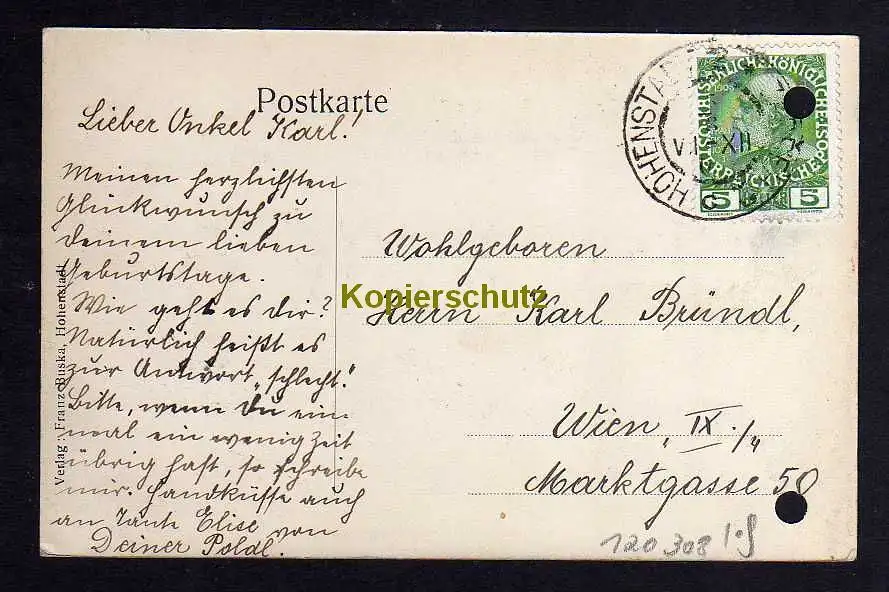 Postkarte
Lieber Onkel Karl!
Meinen herzlichsten
Glückwunsch zu
Deinem lieben
Geburtstage.
Wie geht es dir?
Natürlich heißt es
zur Antwort „schlecht“.
Bitte, wenn Du ein-
mal ein wenig Zeit
übrig hast, so schreibe
mir. Handküsse auch
an Tante Elise von
Deiner Poldl.
Verlag: Franz Buska, Hohenstadt
HOHENSTADT
1908
5 5
Wohlgeboren
Herrn Karl Bründl,
Wien, IX./4
Marktgasse 50
Kopierschutz
120308